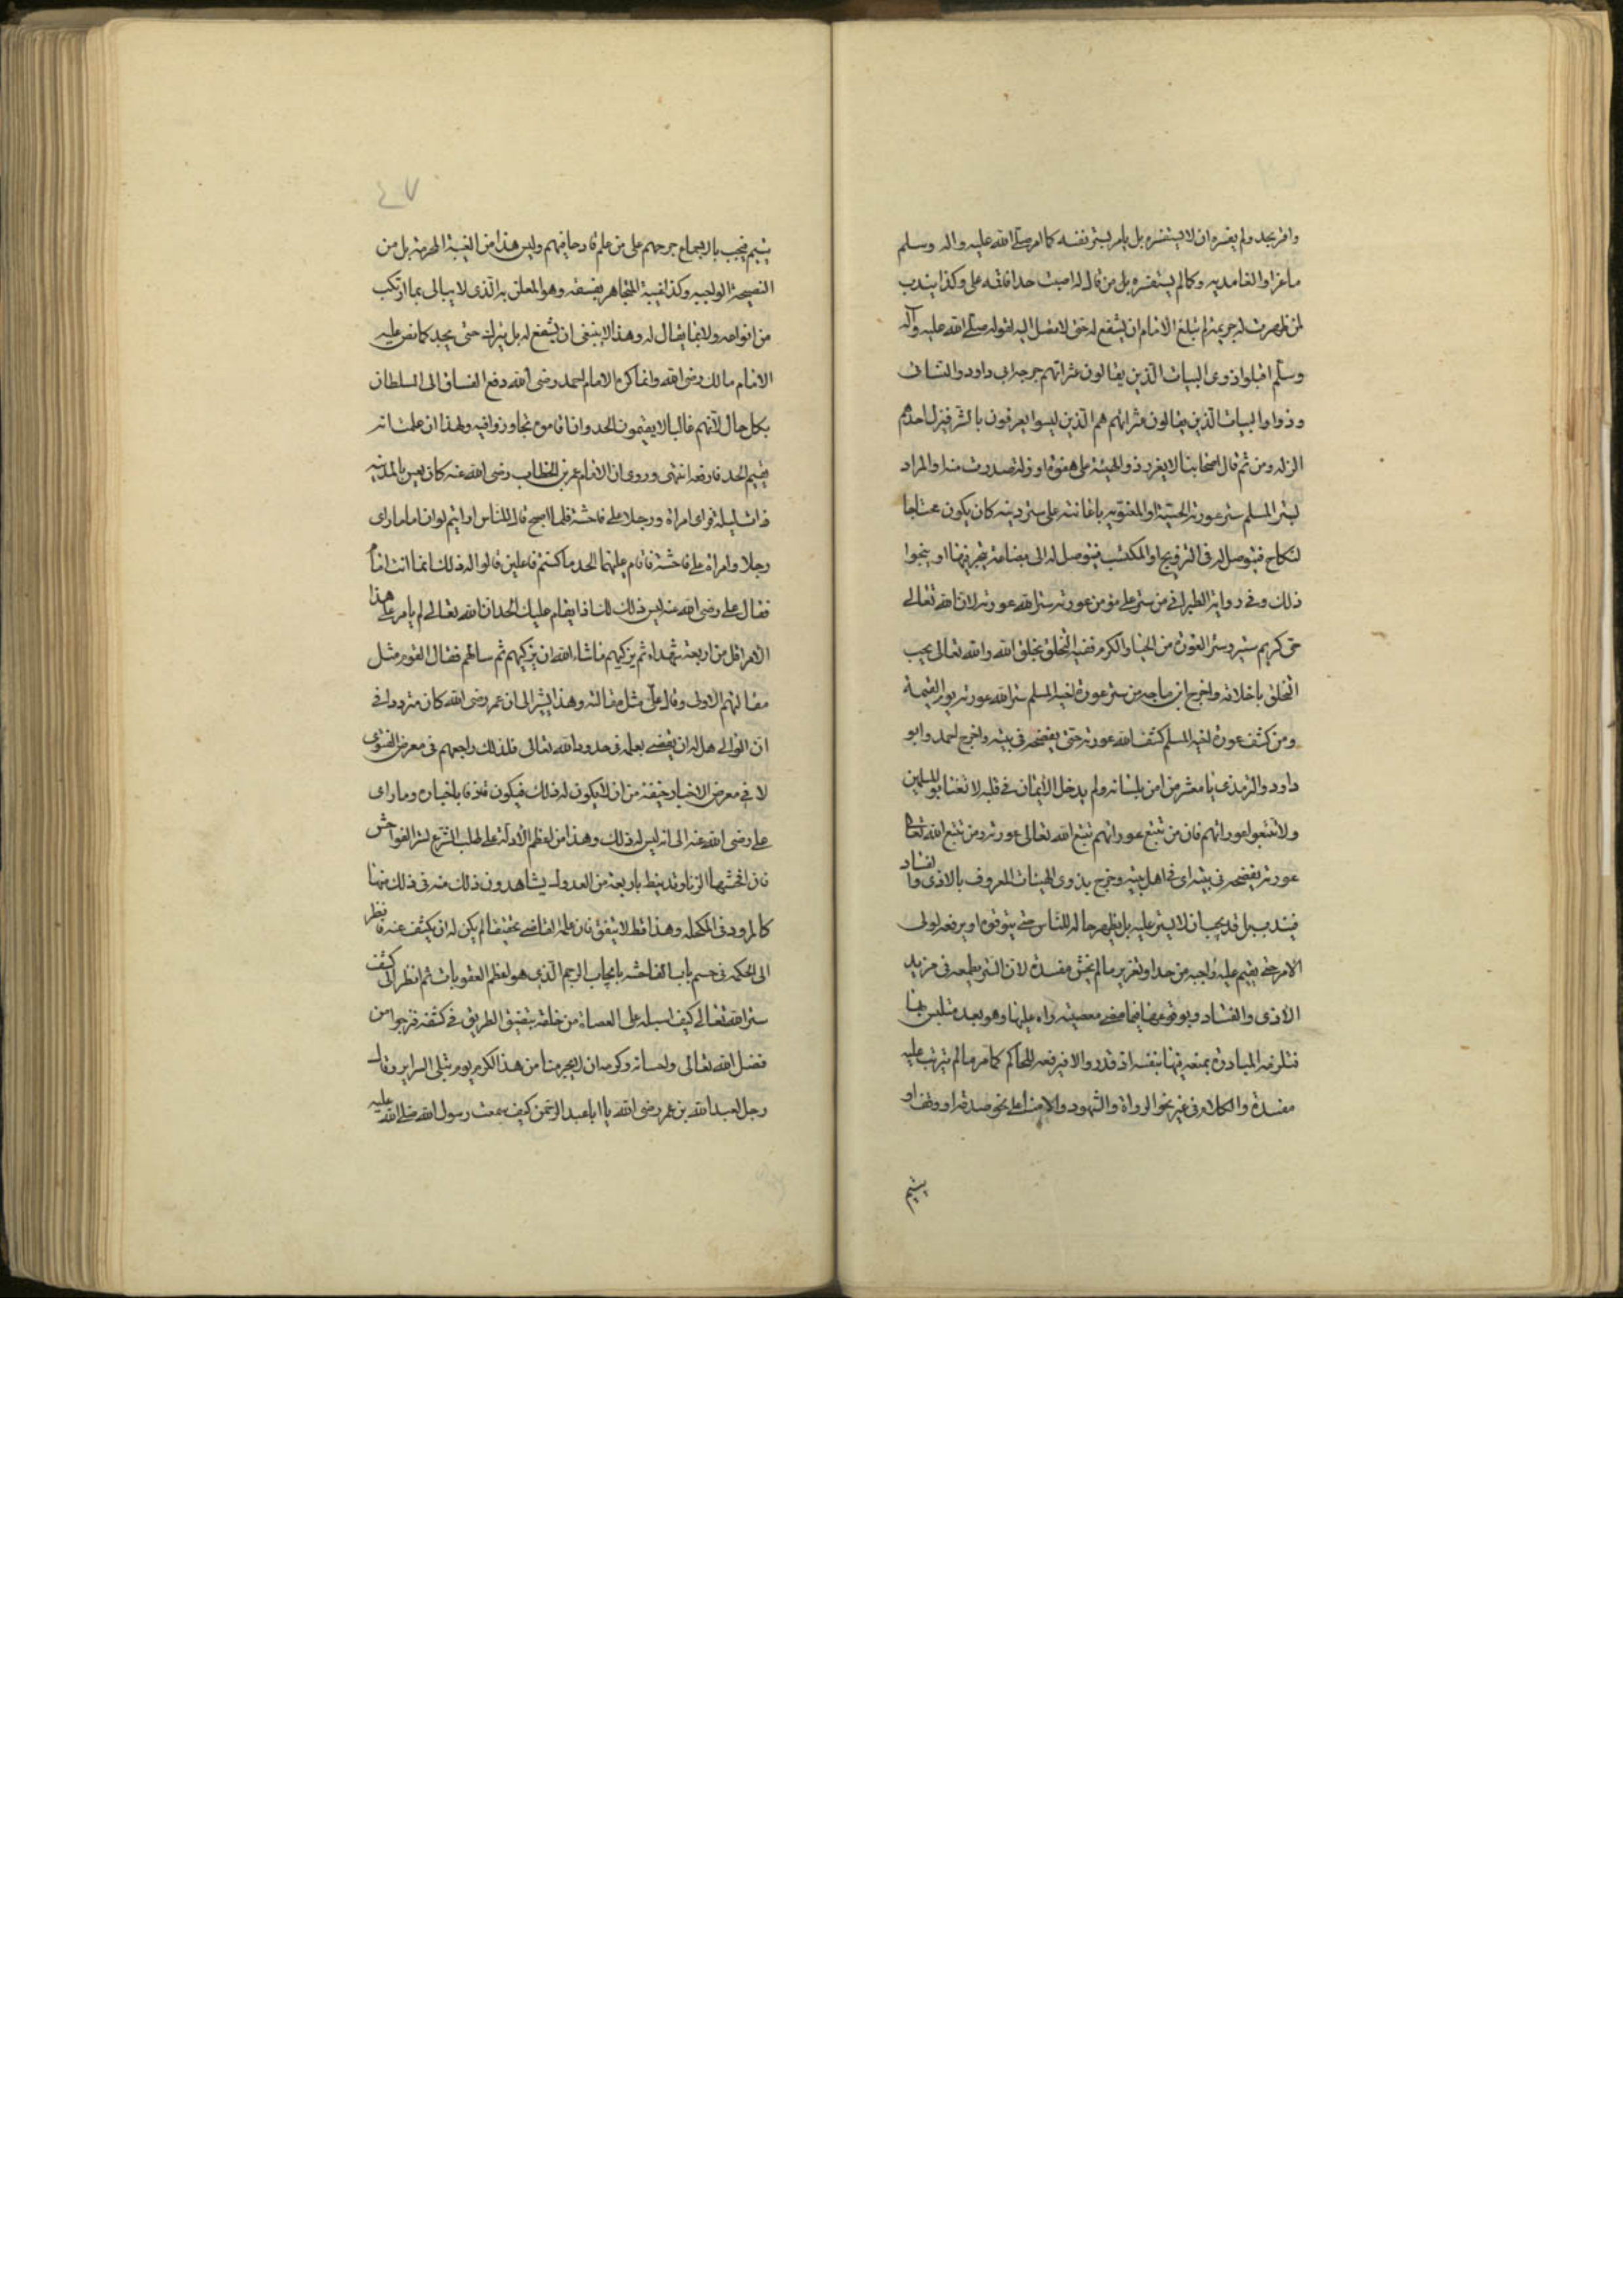 واقر بحد ولم يفسره ان لا يستفسره بل يامر بستر نفسه كما امر صلى الله عليه واله وسلم
ماعزا والغامديه وكما لم يستفسره بل من قال له اصبت حدا فاقمه على وكذا يندب
لمن ظهرت له جريمة لم تبلغ الامام ان يشفع له حتى لا تصل اليه لقوله صلى الله عليه وآله
وسلم اقيلوا ذوى الهيات الذين يقالون عثراتهم خرجه ابى داود والنسائى
وذووا الهيات الذين يقالون عثراتهم هم الذين ليسوا يعرفون بالشر فيزل احدهم
الزله ومن ثم قال اصحابنا لا يعزر ذو الهيئة على هفوة او زلة صدرت منه او المراد
بستر المسلم ستر عورته الحسيّة او المعنويه باعانته على ستر دينه كان يكون محتاجا
لنكاح فيتوصل له فى التزويج او المكتسب فيتوصل له الى بضاعة يتجر فيها او بنحوا
ذلك وفى رواية الطبرانى من ستر على مؤمن عورته ستر الله عورته لان الله تعالى
حى كريم ستير وستر العورة من الحيا والكرم ففيه التخلق بخلق الله والله تعالى يحب
التخلق باخلاقه واخرج ابن ماجه من ستر عورة اخيه المسلم ستر الله عورته يوم القيمة
ومن كشف عورة اخيه المسلم كشف الله عورته حتى يفضحه فى بيته واخرج احمد وابو
داود والترمذى يا معشر من امن بلسانه ولم يدخل الايمان فى قلبه لا تغتابوا المسلمين
ولا تتبعوا عوراتهم فان من تتبع عوراتهم تتبع الله تعالى عورته ومن تتبع الله تعالى
عورته يفضحه فى بيته اى فى اهل بيته وخرج بذوى الهيئات المعروف بالاذى والفساد
فيندب بل قد يجب ان لا يستر عليه بل يظهر حاله للناس حتى يتوقوه او يرفعه لولى
الامر حتى يقيم عليه واجبه من حد او تعزير ما لم يخش مفسدة لان الستر يطمعه فى مزيد
الاذى والفساد وبوقوعها فيما مضى معصية راه عليها وهو بعد متلبس بها
فتلزمه المبادرة بمنعه منها بنفسه ان قدر والا فيرفعه للحاكم كما مر ما لم يترتب عليه
مفسدة والكلام فى غير نحو الرواة والشهود والامناء على نحو صدقة او وقف او
يتيم
٤٧
يتيم فيجب بالاجماع جرحهم على من علم قادحا فيهم وليس هذا من الغيبة المحرمة بل من
النصيحة الواجبه وكذا غيبة المتجاهر بفسقه وهو المعلن به الذى لا يبالى بما ارتكب
من انواعه ولا بما يقال له وهذا لا ينبغى ان يشفع له بل يترك حتى يحد كما نص عليه
الامام مالك رضى الله وانما كره الامام احمد رضى الله دفع الفساق الى السلطان
بكل حال لانهم غالبا لا يقيمون الحد وان اقاموه تجاوزوا فيه ولهذا ان علمت انه
يقيم الحد فارفعه انتهى وروى ان الامام عمر بن الخطاب رضى الله عنه كان يعس بالمدينه
ذات ليلة فراى امراة ورجلا على فاحشة فلما اصبح قال للناس ارايتم لو ان اماما راى
رجلا وامراة على فاحشة فاقام عليهما الحد ما كنتم فاعلين قالوا له ذلك انما انت امام
فقال على رضى الله عنه ليس ذلك لك اذا يقام عليك الحد ان الله تعالى لم يامر على هذا
الامر اقل من اربعة شهداء ثم تركهم ما شاء الله ان يتركهم ثم سالهم فقال القوم مثل
مقالتهم الاولى وقال على مثل مقالته وهذا يشير الى ان عمر رضى الله كان مترددا فى
ان الوالى هل له ان يقضى بعلمه فى حدود الله تعالى فلذلك راجعهم فى معرض الفتوى
لا فى معرض الاخبار خيفة من ان لا يكون له ذلك فيكون قاذفا باخباره وما راى
على رضى الله عنه الى انه ليس له ذلك وهذا من اعظم الأدلة على طلب الشرع لستر الفواحش
فان افحشها الزنا وقد نيط باربعة من العدول يشاهدون ذلك منه فى ذلك منها
كالمرود فى المكحله وهذا قط لا يتفق فان علمه القاضى تحقيقا لم يكن له ان يكشف عنه فانظر
الى الحكمه فى حسم باب الفاحشه بايجاب الرجم الذى هو اعظم العقوبات ثم انظر الى كشف
ستر الله تعالى كيف اسبله على العصاة من خلقه بتضييق الطريق فى كشفه فنرجوا من
فضل الله تعالى واحسانه وكرمه ان لا يحرمنا من هذا الكرم يوم تبلى السراير وقال
رجل لعبد الله بن عمر رضى الله يا ابا عبد الرحمن كيف سمعت رسول الله صلى الله عليه